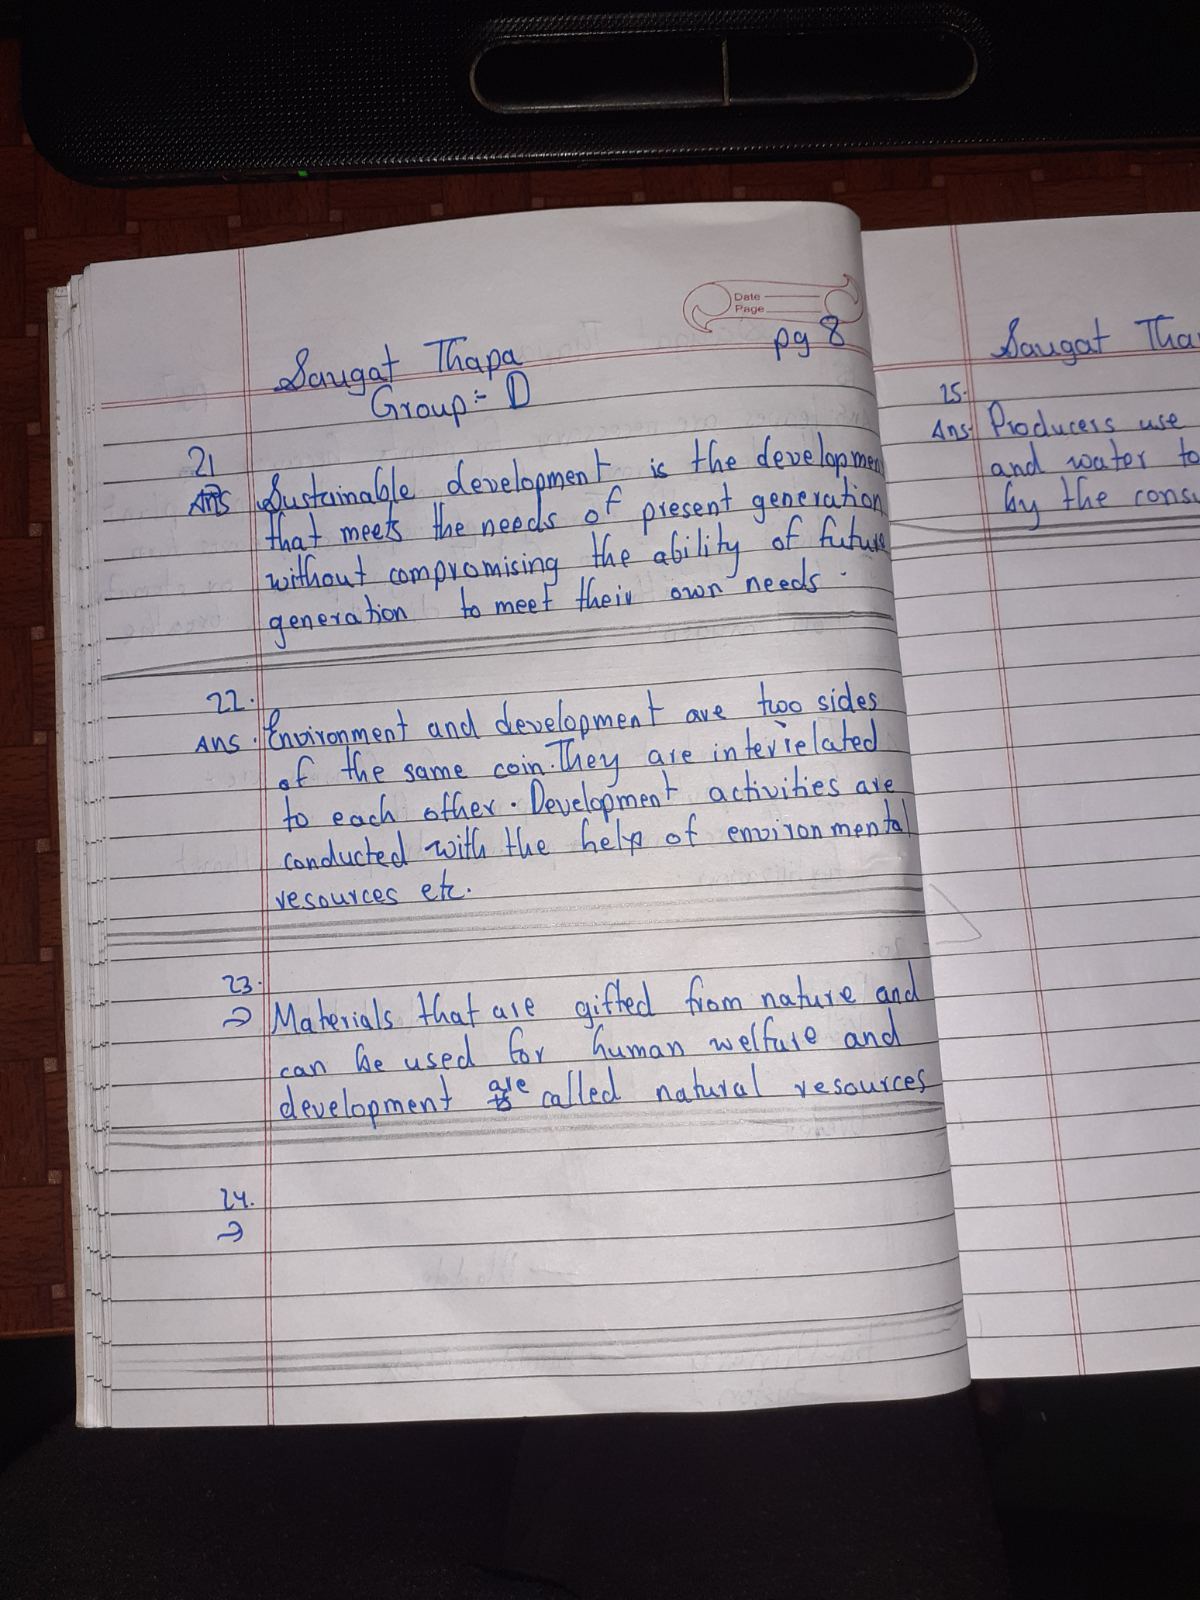 Date
Page
pg 8
Saugat Thapa
Group:- D
21
Ans Sustainable development is the developmen
that meets the needs of present generation
without compromising the ability of future
generation to meet their own needs.
22.
Ans. Environment and development are two sides
of the same coin. They are interrelated
to each other. Development activities are
conducted with the help of environmental
resources etc.
23.
→ Materials that are gifted from nature and
can be used for human welfare and
development are called natural resources
24.
→
Saugat Tha
25.
Ans. Producers use
and water to
by the consu